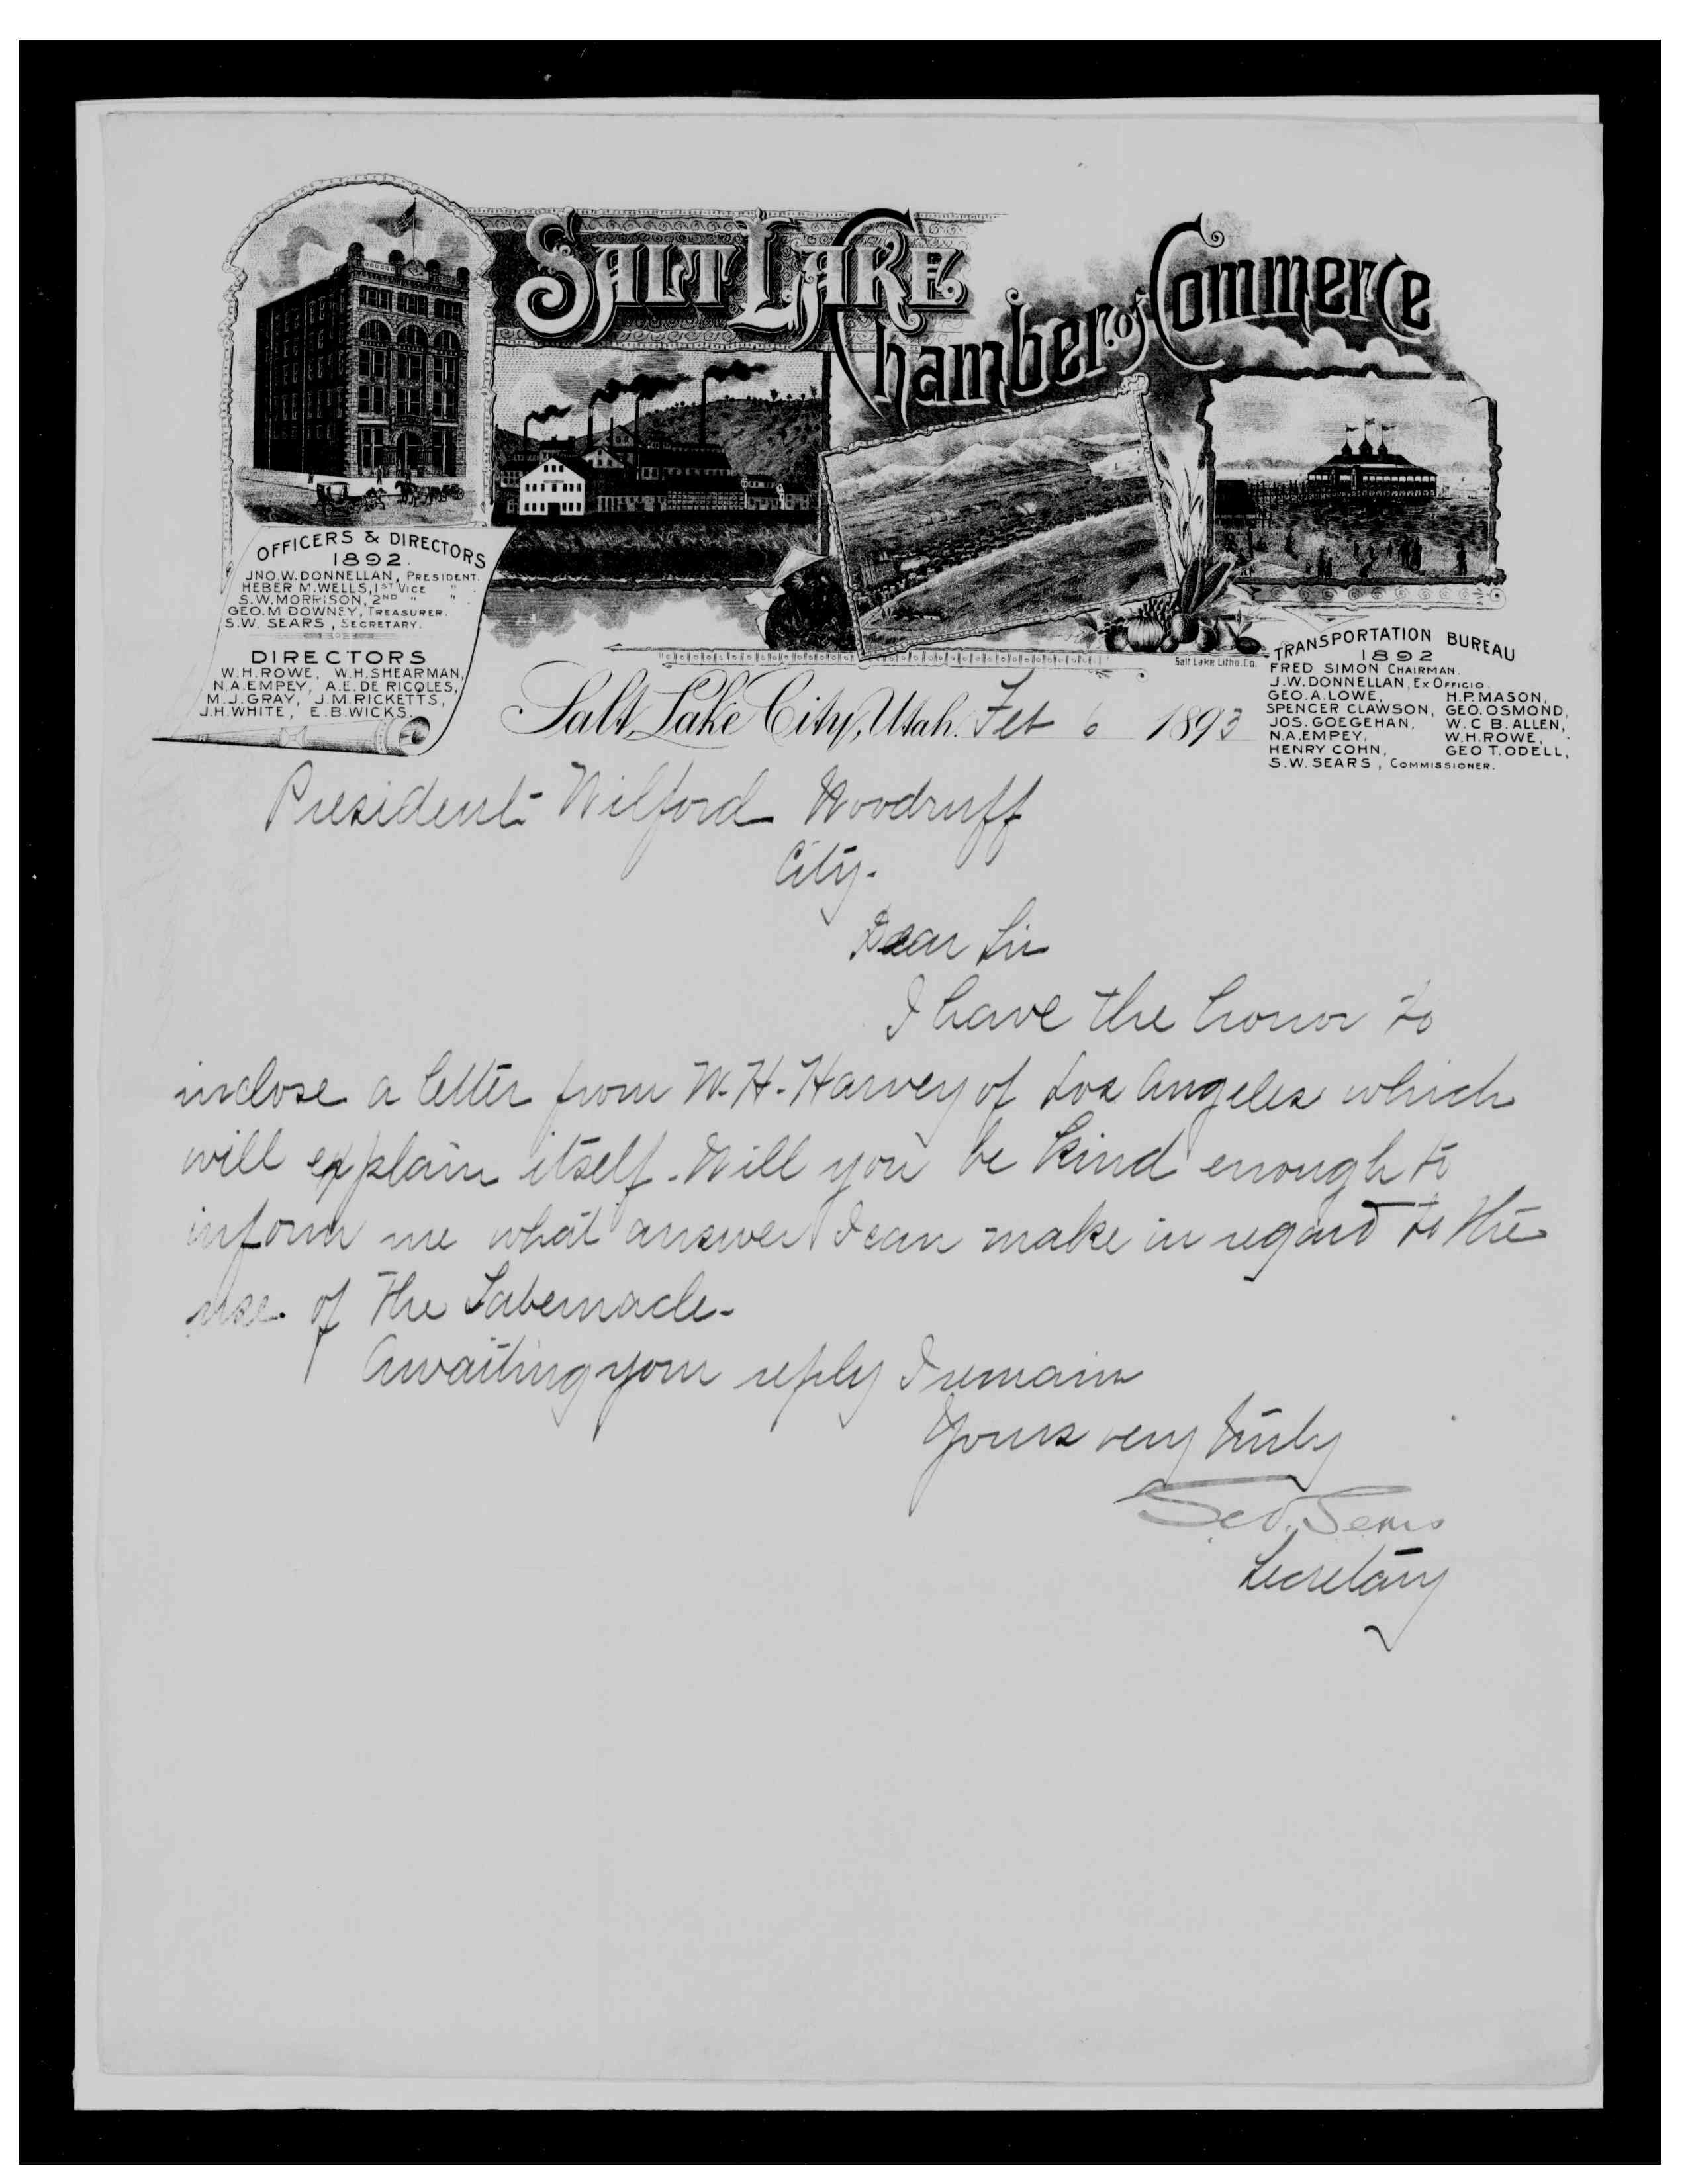 SALT LAKE
Chamber of Commerce
OFFICERS & DIRECTORS
1892.
JNO. W. DONNELLAN, PRESIDENT.
HEBER M. WELLS, 1ST VICE "
S. W. MORRISON, 2ND " "
GEO. M DOWNEY, TREASURER.
S. W. SEARS, SECRETARY.
DIRECTORS
W. H. ROWE, W. H. SHEARMAN,
N. A. EMPEY, A. E. DE RICQLES,
M. J. GRAY, J. M. RICKETTS,
J. H. WHITE, E. B. WICKS.
Salt Lake Litho. Co.
TRANSPORTATION BUREAU
1892
FRED SIMON CHAIRMAN.
J. W. DONNELLAN, EX OFFICIO.
GEO. A. LOWE, H. P. MASON,
SPENCER CLAWSON, GEO. OSMOND,
JOS. GOEGEHAN, W. C. B. ALLEN,
N. A. EMPEY, W. H. ROWE,
HENRY COHN, GEO T. ODELL,
S. W. SEARS, COMMISSIONER.
Salt Lake City, Utah. Feb 6 1893
President Wilford Woodruff
City.
Dear Sir
I have the honor to
inclose a letter from W. H. Harvey of Los Angeles which
will explain itself. Will you be kind enough to
inform me what answer I can make in regard to the
use of the Tabernacle.
Awaiting your reply I remain
Yours very truly
Sears
Secretary